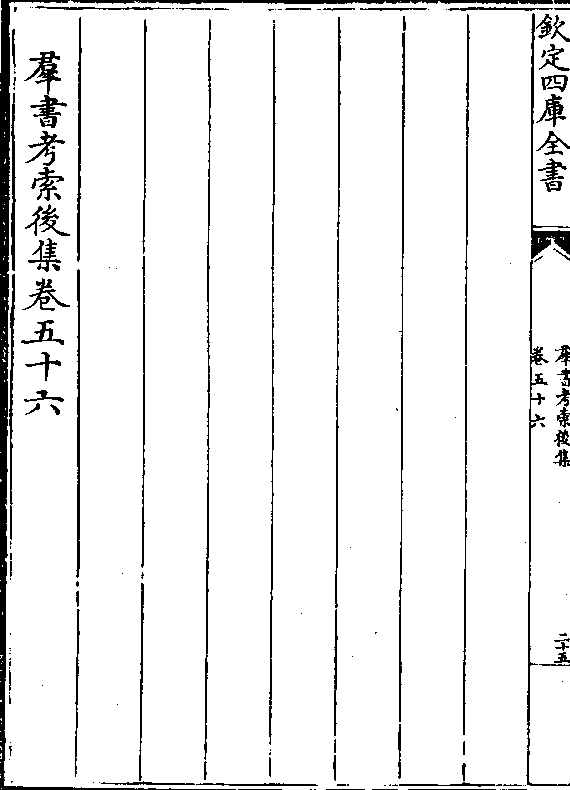 欽定四庫全書
羣書考索後集
卷五十六
二十五
羣書考索後集卷五十六